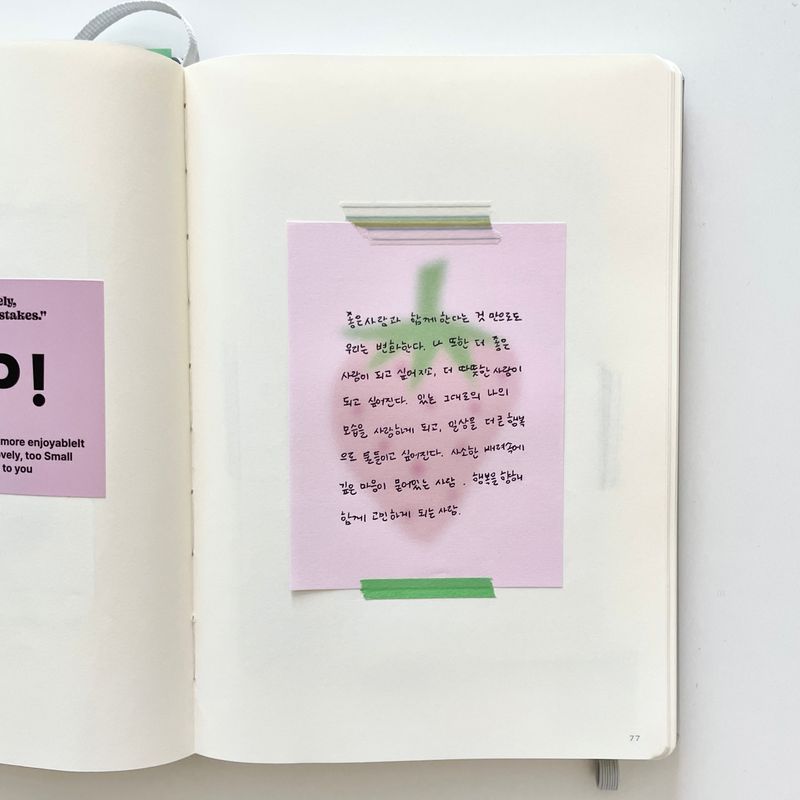 ely,
stakes."
P!
more enjoyableIt
vely, too Small
to you
좋은사람과 함께한다는 것 만으로도
우리는 변화한다. 나 또한 더 좋은
사람이 되고 싶어지고, 더 따뜻한 사람이
되고 싶어진다. 있는 그대로의 나의
모습을 사랑하게 되고, 일상을 더 큰 행복
으로 물들이고 싶어진다. 사소한 배려속에
깊은 마음이 묻어있는 사람. 행복을 향해
함께 고민하게 되는 사람.
77